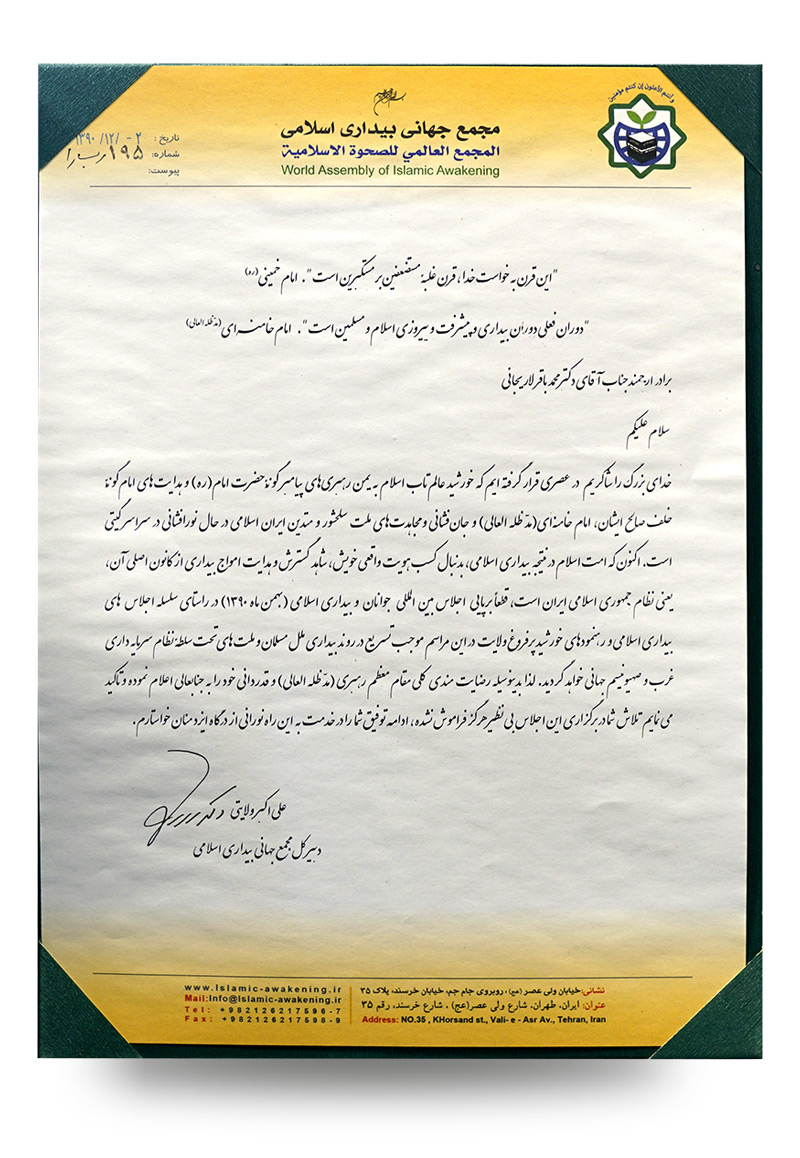 وأنتم الأعلون إن كنتم مؤمنین
مجمع جهانی بیداری اسلامی
المجمع العالمي للصحوة الاسلامية
World Assembly of Islamic Awakening
تاریخ: ۱۳۹۰/۱۲/۰۲
شماره: ۱۹۵
پیوست:
"این قرن به خواست خدا، قرن غلبۀ مستضعفین بر مستکبرین است". امام خمینی (ره)
"دوران فعلی دوران بیداری و پیشرفت و پیروزی اسلام و مسلمین است". امام خامنه‌ای (مد ظله العالی)
برادر ارجمند جناب آقای دکتر محمد باقر لاریجانی
سلام علیکم
خدای بزرگ را شاکریم در عصری قرار گرفته ایم که خورشید عالم تاب اسلام به یمن رهبری‌های پیامبر گونۀ حضرت امام (ره) و هدایت های امام گونۀ
خلف صالح ایشان، امام خامنه‌ای (مد ظله العالی) و جان فشانی و مجاهدت‌های ملت سلحشور و متدین ایران اسلامی در حال نورافشانی در سراسر گیتی
است. اکنون که امت اسلام در نتیجه بیداری اسلامی، بدنبال کسب هویت واقعی خویش، شاهد گسترش و هدایت امواج بیداری از کانون اصلی آن،
یعنی نظام جمهوری اسلامی ایران است، قطعاً برپایی اجلاس بین المللی جوانان و بیداری اسلامی (بهمن ماه ۱۳۹۰) در راستای سلسله اجلاس های
بیداری اسلامی و رهنمودهای خورشید پر فروغ ولایت در این مراسم موجب تسریع در روند بیداری ملل مسلمان و ملت های تحت سلطه نظام سرمایه داری
غرب و صهیونیسم جهانی خواهد گردید. لذا بدینوسیله رضایت مندی کلی مقام معظم رهبری (مد ظله العالی) و قدردانی خود را به جنابعالی اعلام نموده و تاکید
می نمایم تلاش شما در برگزاری این اجلاس بی نظیر هرگز فراموش نشده، ادامه توفیق شما را در خدمت به این راه نورانی از درگاه ایزد منان خواستارم.
علی اکبر ولایتی
دبیر کل مجمع جهانی بیداری اسلامی
نشانی: خیابان ولی عصر (عج)، روبروی جام جم، خیابان خرسند، پلاک ۳۵
عنوان: ایران، طهران، شارع ولی عصر(عج) ، شارع خرسند، رقم ۳۵
Address: NO.35 , KHorsand st., Vali- e - Asr Av., Tehran, Iran
www.Islamic-awakening.ir
Mail:Info@Islamic-awakening.ir
Tel: +982126217596-7
Fax: +982126217598-9